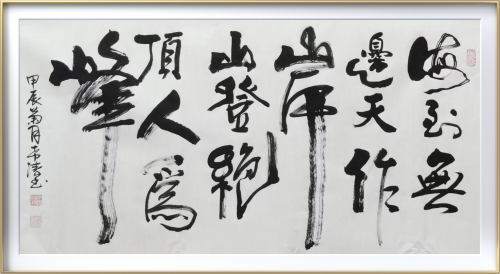 海到無
邊天作
岸
山登絕
頂人爲
峰
甲辰菊月